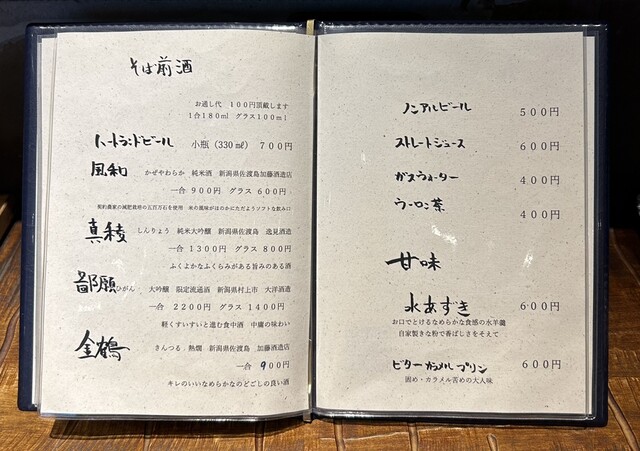 そば前酒
お通し代 100円頂戴します
1合180ml グラス100ml
ハートランドビール 小瓶(330㎖) 700円
風和 かぜやわらか 純米酒 新潟県佐渡島加藤酒造店
一合 900円 グラス 600円
契約農家の減肥栽培の五百万石を使用 米の風味がほのかにただようソフトな飲み口
真稜 しんりょう 純米大吟醸 新潟県佐渡島 逸見酒造
一合 1300円 グラス 800円
ふくよかなふくらみがある旨みのある酒
鄙願 ひがん 大吟醸 限定流通酒 新潟県村上市 大洋酒造
一合 2200円 グラス 1400円
軽くすいすいと進む食中酒 中庸の味わい
金鶴 きんつる 熱燗 新潟県佐渡島 加藤酒造店
一合 900円
キレのいいなめらかなのどごしの良い酒
ノンアルビール 500円
ストレートジュース 600円
ガスウォーター 400円
ウーロン茶 400円
甘味
水あずき 600円
お口でとけるなめらかな食感の水羊羹
自家製きな粉で香ばしさをそえて
ビターカラメルプリン 600円
固め・カラメル苦めの大人味